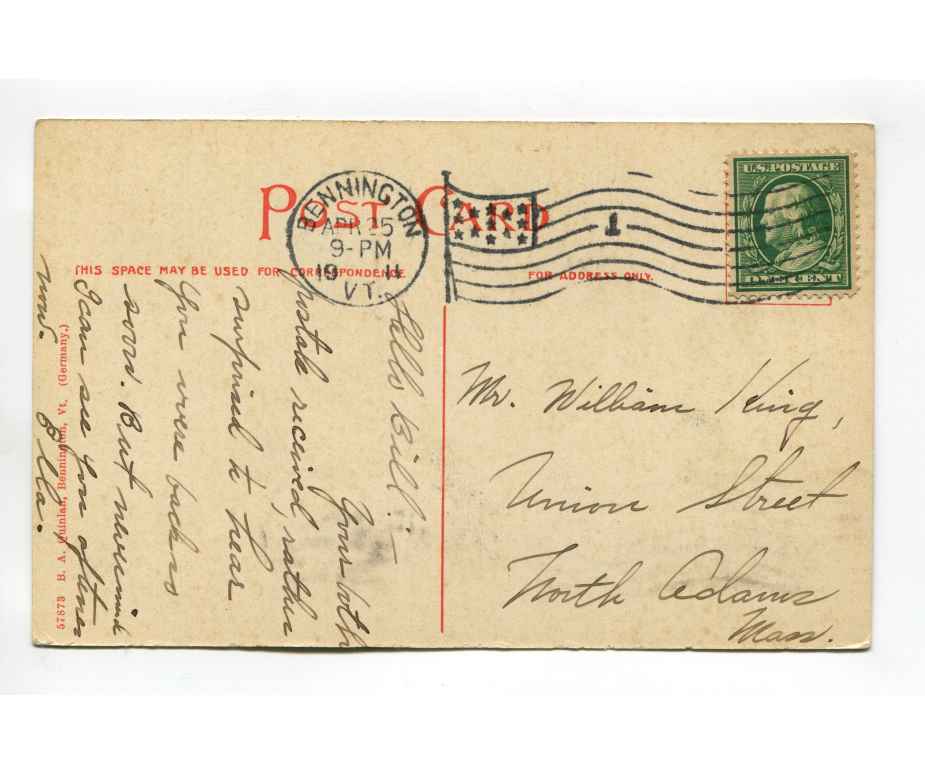 POST CARD
THIS SPACE MAY BE USED FOR CORRESPONDENCE
FOR ADDRESS ONLY.
BENNINGTON
APR 25
9-PM
19 11
VT.
1
U.S. POSTAGE
ONE CENT
Hello Bill:—
Your 10th
postale received, rather
surprised to hear
You were back so
soon. But nevermind
I can see you oftner
now. Ella.
Mr. William King,
Union Street
North Adams
Mass.
57873 B. A. Quinlan, Bennington, Vt. (Germany.)